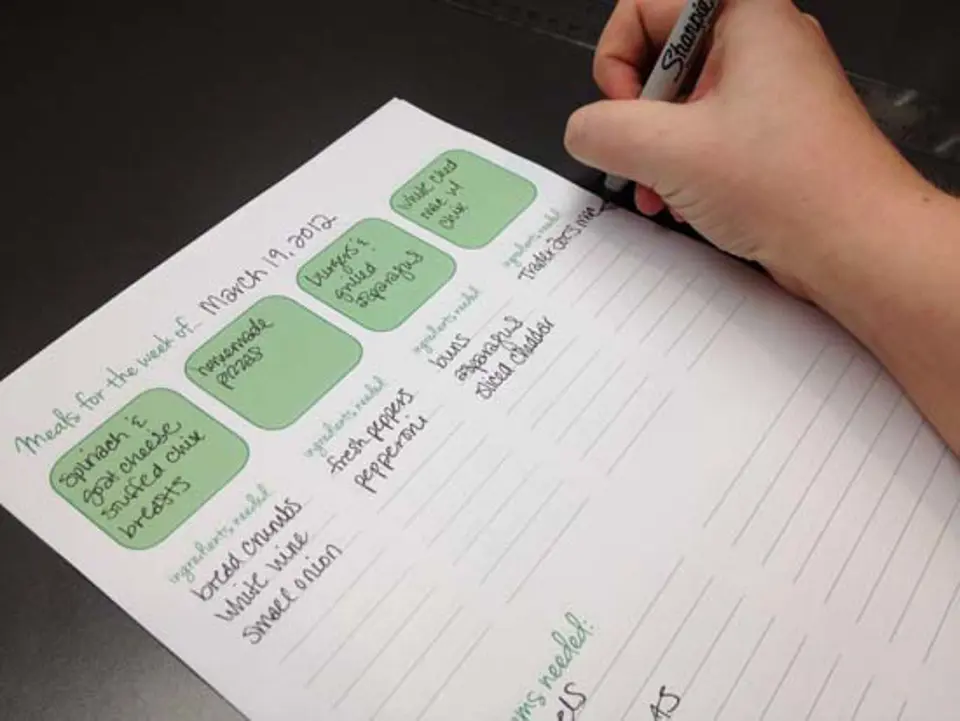 Meals for the week of... March 19, 2012
spinach &
goat cheese
stuffed chix
breasts
ingredients needed
bread crumbs
white wine
small onion
homemade
pizzas
ingredients needed
fresh peppers
pepperoni
burgers &
grilled
asparagus
ingredients needed
buns
asparagus
sliced cheddar
white ched
mac w/
chix
ingredients needed
Trader Joe's
ms needed:
els
as
Sharpie